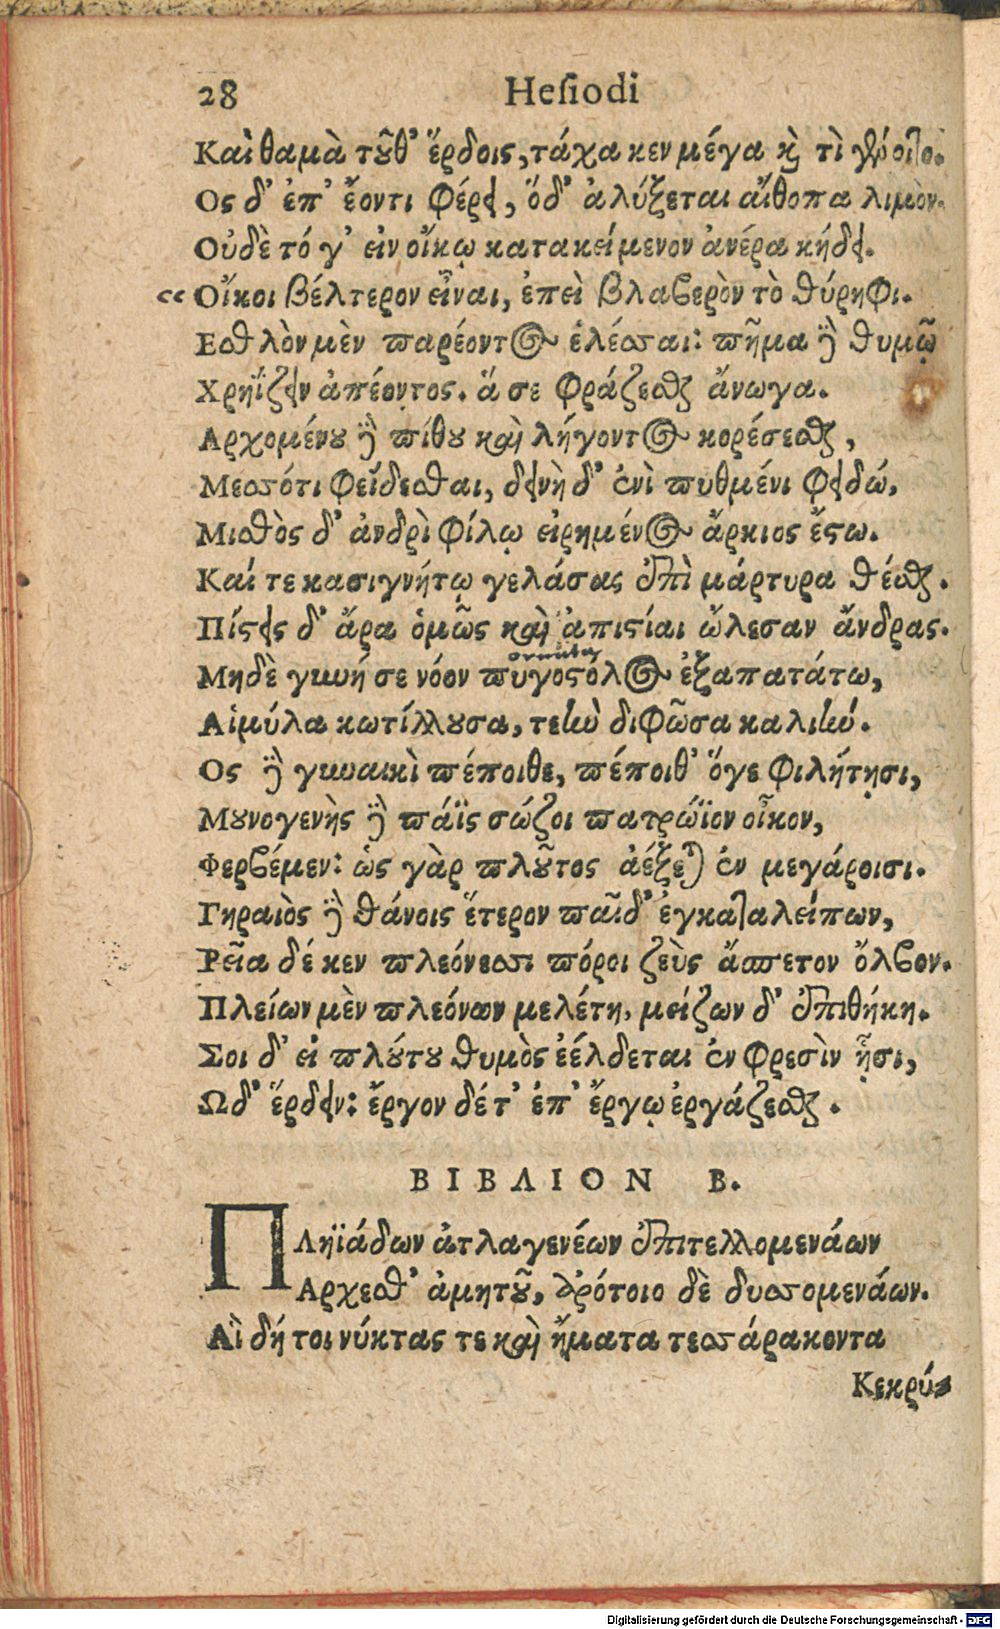 28 Hesiodi
Καὶ θαμὰ τοῦθ᾽ ἕρδοις, τάχα κεν μέγα καὶ τὶ γένοιτο.
Ος δ᾽ ἐπ᾽ ἔοντι φέρει, ὅδ᾽ ἀλύξεται αἴθοπα λιμὸν.
Οὐδὲ τό γ᾽ εἰν οἴκῳ κατακείμενον ἀνέρα κήδει.
‹‹ Οἴκοι βέλτερον εἶναι, ἐπεὶ βλαβερὸν τὸ θύρηφι.
Εσθλὸν μὲν παρέοντος ἑλέσθαι: πῆμα δὲ θυμῷ
Χρηΐζειν ἀπέοντος. ἅ σε φράζεσθαι ἄνωγα.
Αρχομένου δὲ πίθου καὶ λήγοντος κορέσεσθαι,
Μεσσότι φείδεσθαι, δεινὴ δ᾽ ἐνὶ πυθμένι φειδώ,
Μισθὸς δ᾽ ἀνδρὶ φίλῳ εἰρημένος ἄρκιος ἔστω.
Καί τε κασιγνήτῳ γελάσας ἐπὶ μάρτυρα θέσθαι.
Πίστεις δ᾽ ἄρα ὁμῶς καὶ ἀπιστίαι ὤλεσαν ἄνδρας.
Μηδὲ γυνή σε νόον πυγοστόλος ἐξαπατάτω,
Αἱμύλα κωτίλλουσα, τεὴν διφῶσα καλιήν.
Ος δὲ γυναικὶ πέποιθε, πέποιθ᾽ ὅγε φιλήτῃσι,
Μουνογενὴς δὲ πάϊς σώζοι πατρώϊον οἶκον,
Φερβέμεν: ὡς γὰρ πλοῦτος ἀέξεται ἐν μεγάροισι.
Γηραιὸς δὲ θάνοις ἕτερον παῖδ᾽ ἐγκαταλείπων,
Ρεῖα δέ κεν πλεόνεσσι πόροι ζεὺς ἄσπετον ὄλβον.
Πλείων μὲν πλεόνων μελέτη, μείζων δ᾽ ἐπιθήκη.
Σοι δ᾽ εἰ πλούτου θυμὸς ἐέλδεται ἐν φρεσὶν ᾗσι,
Ωδ᾽ ἕρδειν: ἔργον δέ τ᾽ ἐπ᾽ ἔργῳ ἐργάζεσθαι.
ΒΙΒΛΙΟΝ Β.
Πληϊάδων ἀτλαγενέων ἐπιτελλομενάων
Αρχεσθ᾽ ἀμητοῦ, ἀρότοιο δὲ δυσσομενάων.
Αἳ δή τοι νύκτας τε καὶ ἤματα τεσσάρακοντα
Κεκρύ-
Digitalisierung gefördert durch die Deutsche Forschungsgemeinschaft - DFG